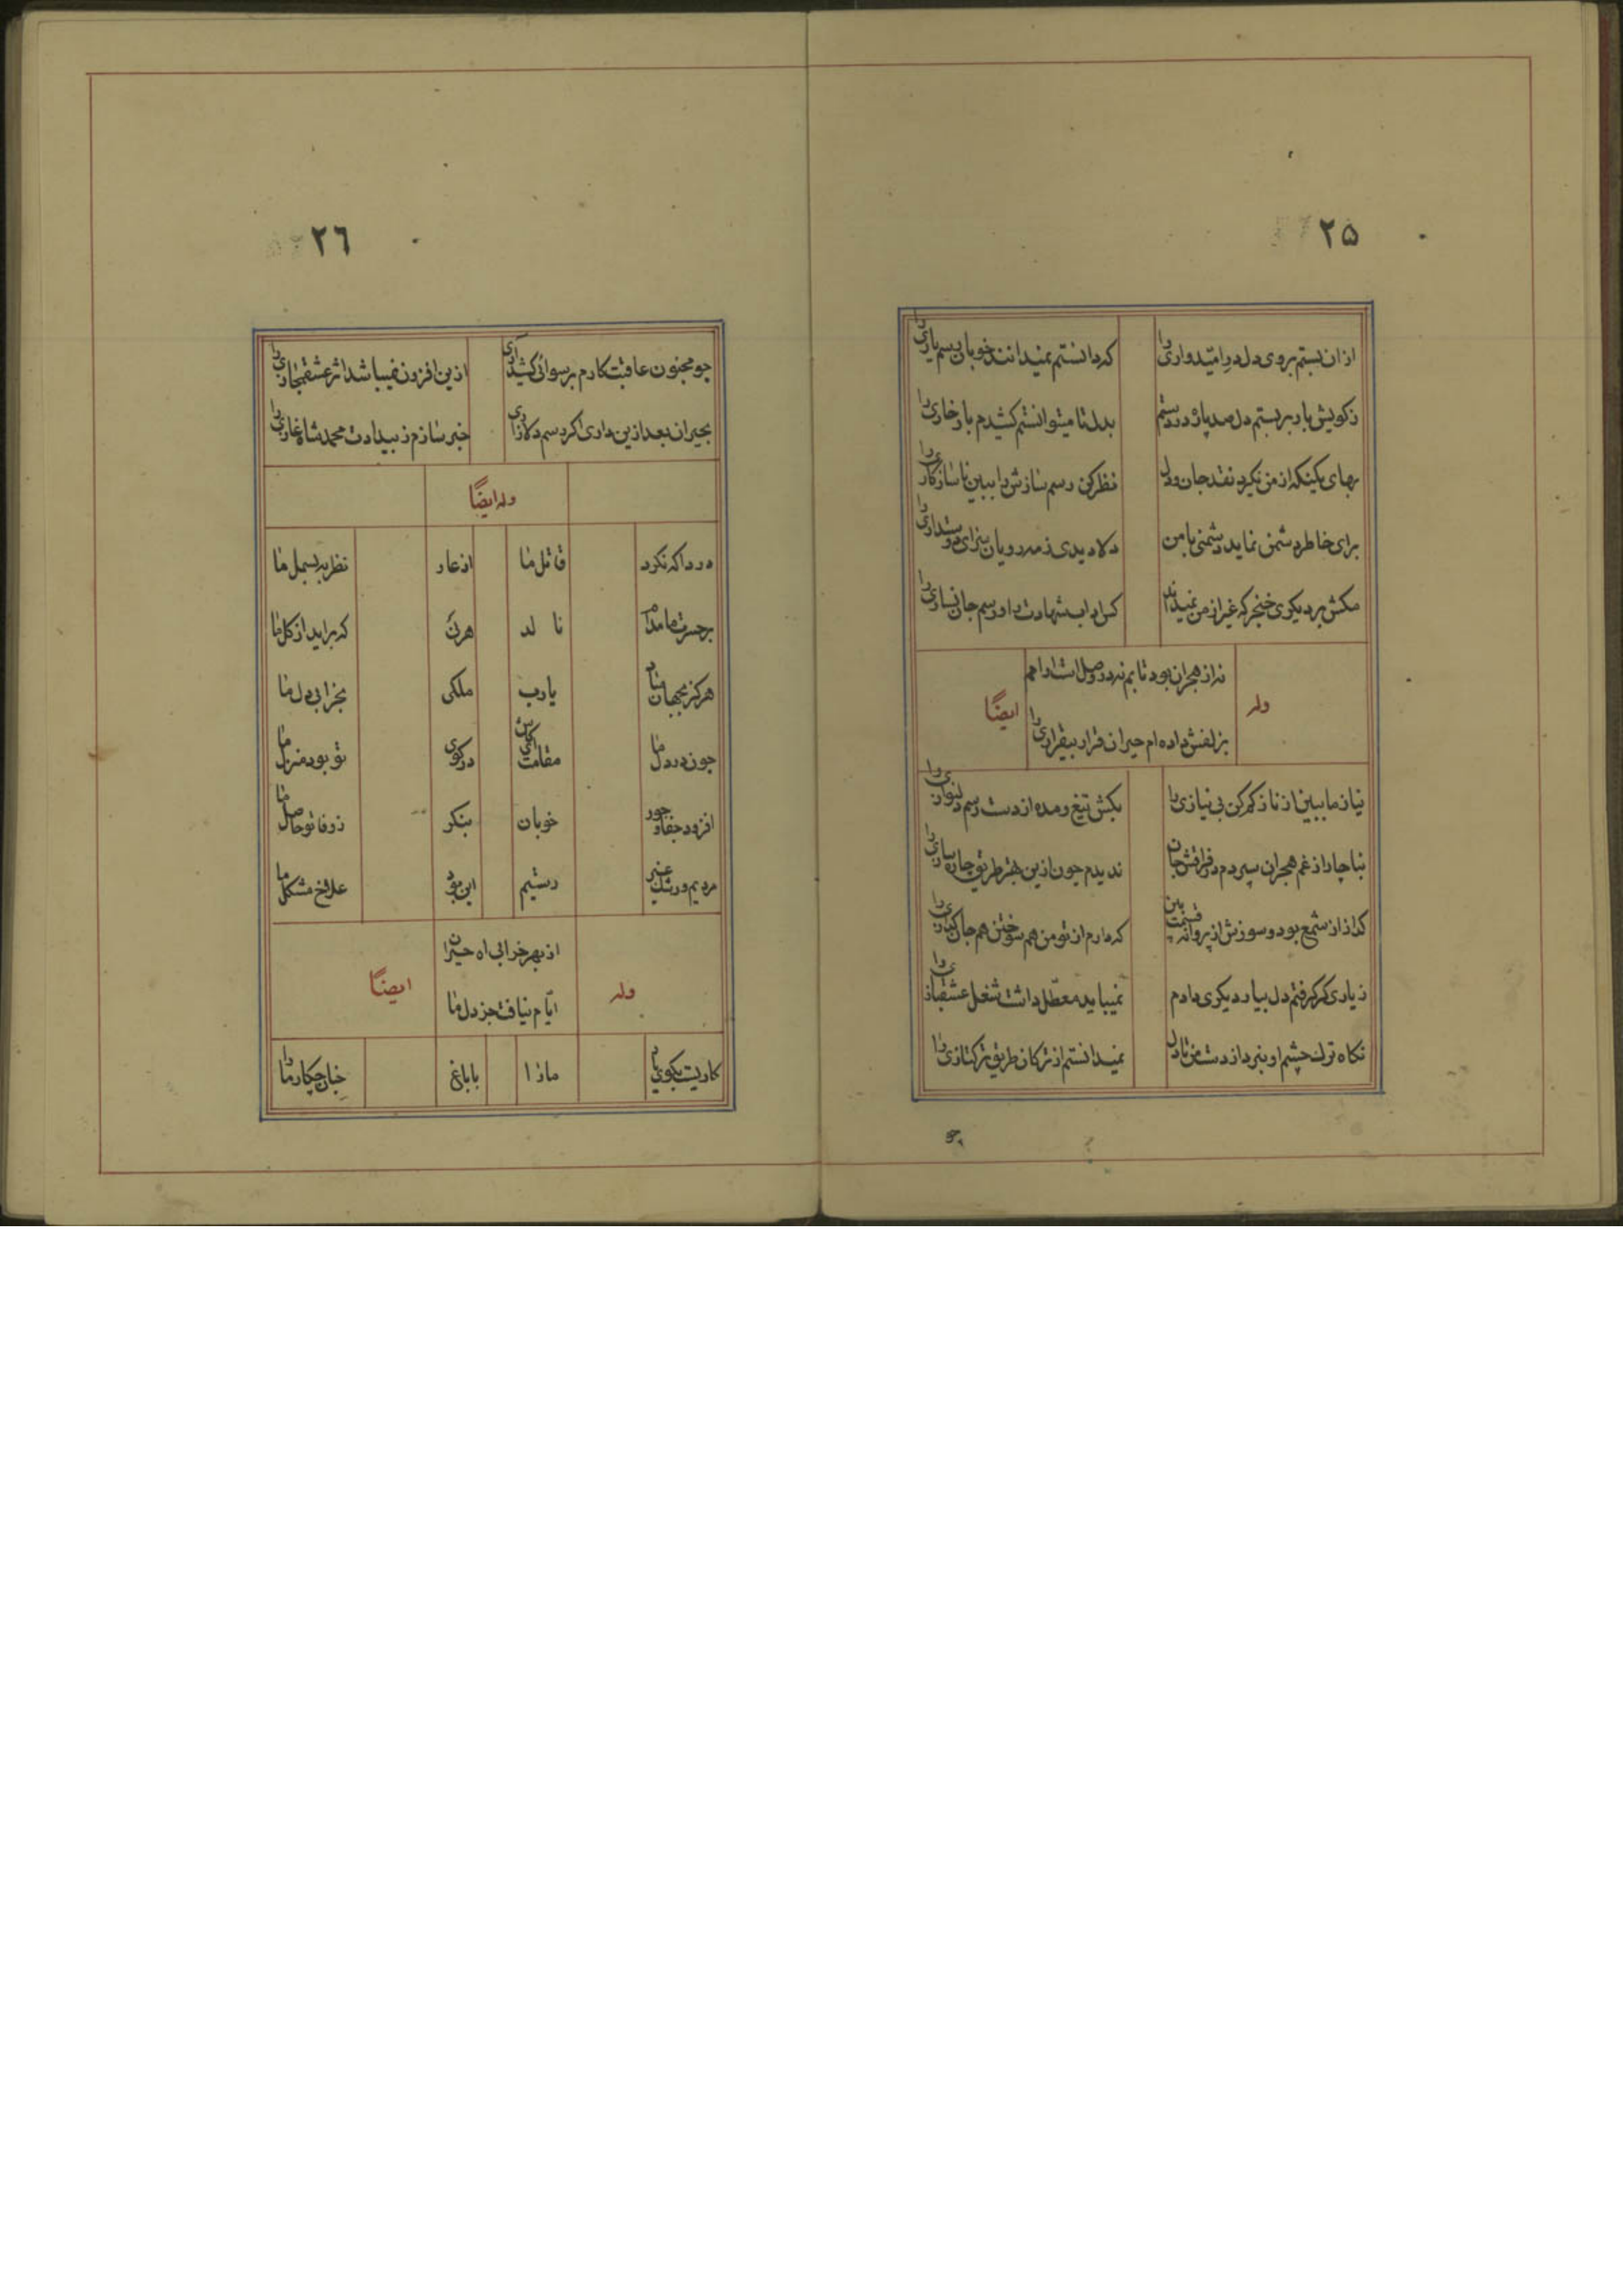 ۲۵
ازان بستم بروی دل در امیدواری را که دانستم نمیدانند خوبان رسم یاری را
ز کویش بار بربستم دل صد پاره در دستم بدل تا میتوانستم کشیدم بار خاری را
بهای یکنکه از من نکیرد نقد جان و دل نظر کن رسم سازش را ببین ناسازکاری را
برای خاطر دشمن نماید دشمنی با من دلا دیدی ز مه رویان سزای دوستداری را
مکش بر دیکری خنجر که غیر از من نمیداند کسی داب شهادت را و رسم جان نثاری را
نه از هجران بود تابم نه در وصل است ارامم
وله ایضًا
بزلفش داده ام حیران قرار بیقراری را
نیاز ما ببین از ناز کم کن بی نیازی را بکش تیغ و مده از دست رسم دلنوازی را
بناچار از غم هجران سپردم در فراقش جان ندیدم چون ازین بهتر طریق چاره سازی را
کداز از شمع بود و سوزش از پروانه قسمت بین که دارم از تو من هم سوختن هم جان کدازی را
ز یاری کر کرفتم دل بیار دیکری دادم نمیباید معطل داشت شغل عشقبازی را
نکاه ترک چشم او نبرد از دست من تا دل نمیدانستم از ترکان طریق ترکتازی را
۲٦
چو مجنون عاقبت کارم برسوائی کشید اری ازین افزون نمیباشد اثر عشق مجازی را
بحیران بعد ازین داری اکر رسم دلازاری خبر سازم ز بیدادت محمد شاه غازی را
وله ایضًا
دردا که نکرد قاتل ما از عار نظر به بسمل ما
بر حسرت ما مدام نا لد هر نی که براید از کل ما
هرکز بجهان مباد یارب ملکی بخرابی دل ما
چون در دل ما مقامت در کوی تو بود منزل ما
افزود جفا و جور خوبان بنکر ز وفا تو حاصل ما
مردیم و ز رشک غیر رستیم این بود علاج مشکل ما
از بهر خرابی اه حیران
وله ایضًا
ایام نیافت جز دل ما
کاریست بکوی یار ما را با باغ جنان چکار ما را